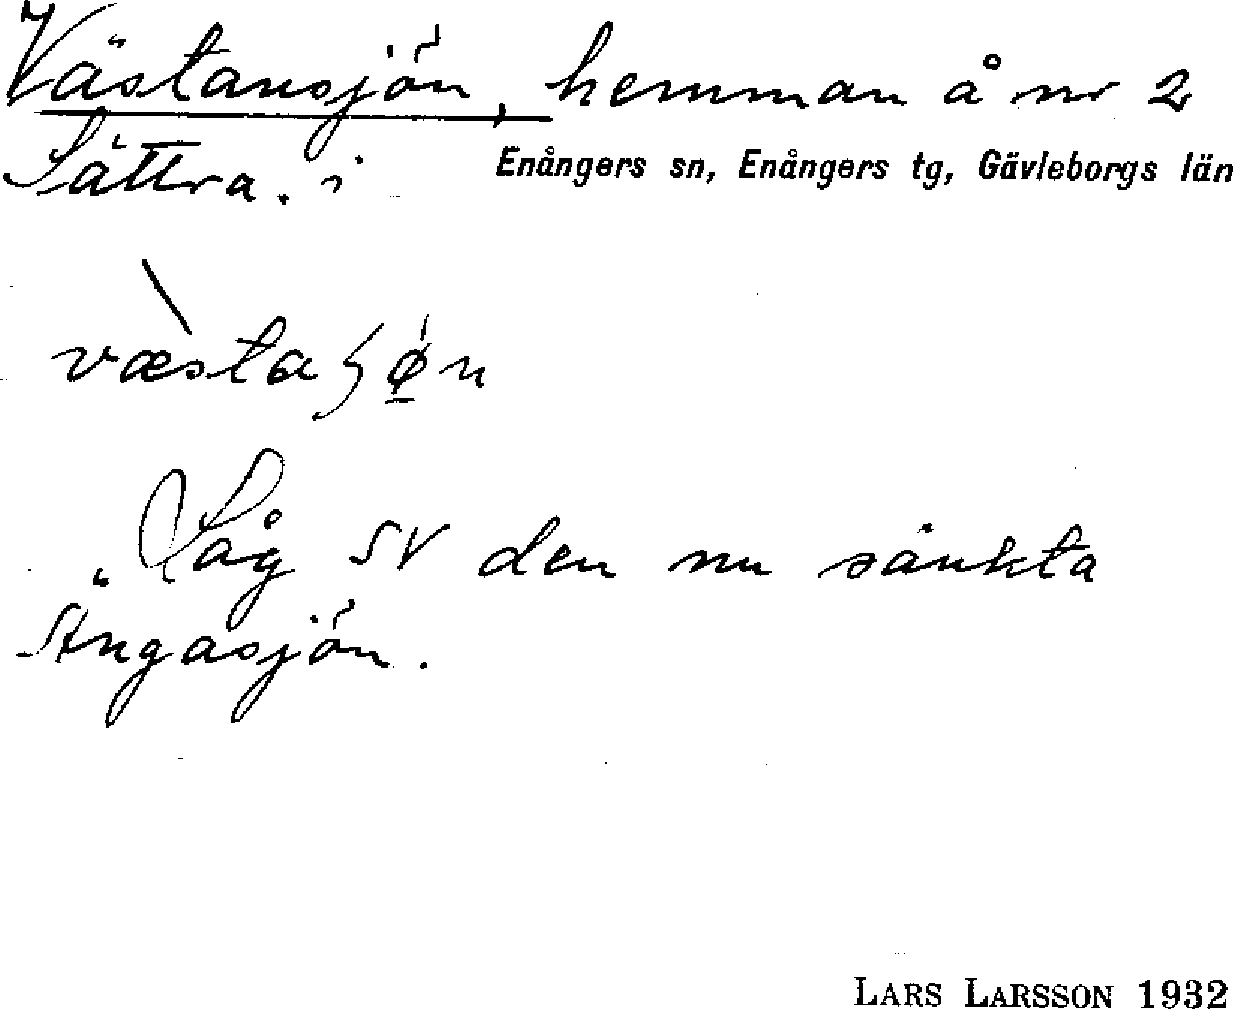 Västansjön, hemman å nr 2
Sättra. i Enångers sn, Enångers tg, Gävleborgs län
væstaʃø̱n
"Låg SV den nu sänkta
Ängasjön.
LARS LARSSON 1932